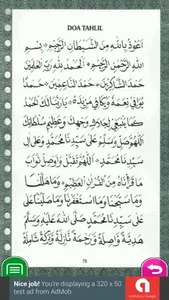 DOA TAHLIL
أَعُوْذُ بِاللهِ مِنَ الشَّيْطَانِ الرَّجِيْمِ بِسْمِ
اللهِ الرَّحْمٰنِ الرَّحِيْمِ الْحَمْدُ لِلّٰهِ رَبِّ الْعَالَمِيْنَ
حَمْدَ الشَّاكِرِيْنَ حَمْدَ النَّاعِمِيْنَ حَمْدًا
يُوَافِيْ نِعَمَهُ وَيُكَافِئُ مَزِيْدَهُ يَا رَبَّنَا لَكَ الْحَمْدُ
كَمَا يَنْبَغِيْ لِجَلَالِ وَجْهِكَ وَعَظِيْمِ سُلْطَانِكَ
اللّٰهُمَّ صَلِّ وَسَلِّمْ عَلَى سَيِّدِنَا مُحَمَّدٍ وَعَلَى اٰلِ
سَيِّدِنَا مُحَمَّدٍ اللّٰهُمَّ تَقَبَّلْ وَاَوْصِلْ ثَوَابَ
مَا قَرَأْنَاهُ مِنَ الْقُرْاٰنِ الْعَظِيْمِ وَمَا هَلَّلْنَا
وَمَا سَبَّحْنَا وَمَا اسْتَغْفَرْنَا وَمَا صَلَّيْنَا
عَلَى سَيِّدِنَا مُحَمَّدٍ صَلَّى اللهُ عَلَيْهِ وَسَلَّمَ
هَدِيَّةً وَاصِلَةً وَرَحْمَةً نَازِلَةً وَبَرَكَةً شَامِلَةً
78
Nice job! You're displaying a 320 x 50
test ad from AdMob.